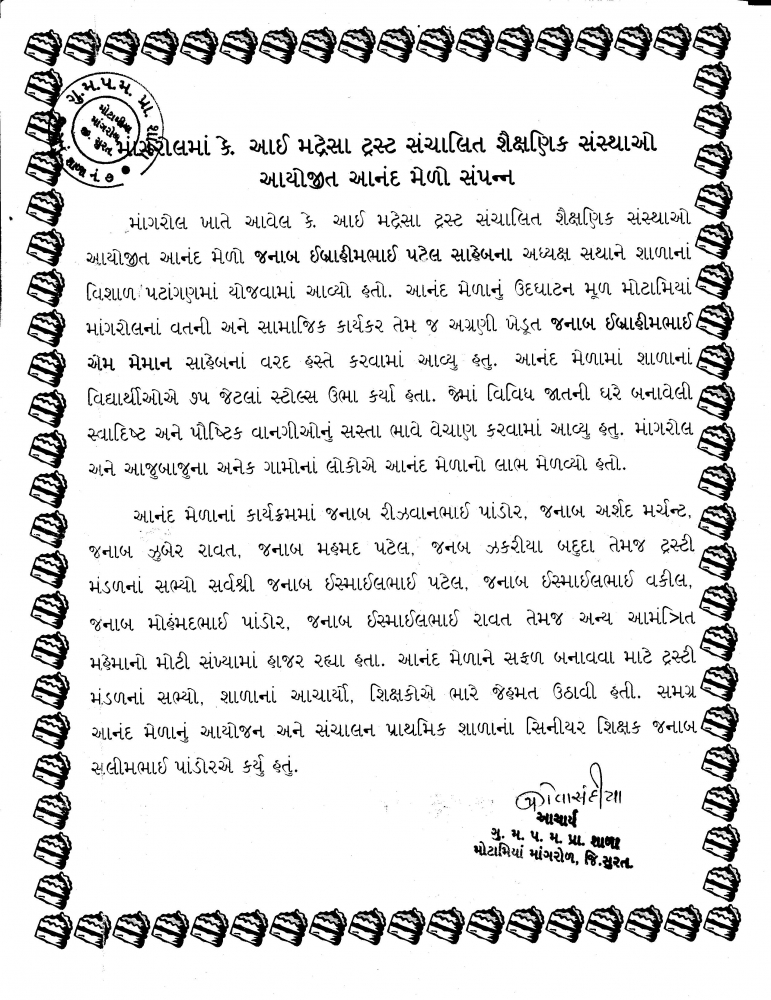 ગુ.મ.પ.મ. પ્રા. શાળા
મોટામીયા
માંગરોળ
જી. સુરત
માંગરોલમાં કે. આઈ મદ્રેસા ટ્રસ્ટ સંચાલિત શૈક્ષણિક સંસ્થાઓ
આયોજીત આનંદ મેળો સંપન્ન
માંગરોલ ખાતે આવેલ કે. આઈ મદ્રેસા ટ્રસ્ટ સંચાલિત શૈક્ષણિક સંસ્થાઓ
આયોજીત આનંદ મેળો જનાબ ઈબ્રાહીમભાઈ પટેલ સાહેબના અધ્યક્ષ સથાને શાળાનાં
વિશાળ પટાંગણમાં યોજવામાં આવ્યો હતો. આનંદ મેળાનું ઉદઘાટન મૂળ મોટામિયાં
માંગરોલનાં વતની અને સામાજિક કાર્યકર તેમ જ અગ્રણી ખેડૂત જનાબ ઈબ્રાહીમભાઈ
એમ મેમાન સાહેબનાં વરદ હસ્તે કરવામાં આવ્યુ હતુ. આનંદ મેળામાં શાળાનાં
વિદ્યાર્થીઓએ ૭૫ જેટલાં સ્ટોલ્સ ઉભા કર્યા હતા. જેમાં વિવિધ જાતની ઘરે બનાવેલી
સ્વાદિષ્ટ અને પૌષ્ટિક વાનગીઓનું સસ્તા ભાવે વેચાણ કરવામાં આવ્યુ હતુ. માંગરોલ
અને આજુબાજુના અનેક ગામોનાં લોકોએ આનંદ મેળાનો લાભ મેળવ્યો હતો.
આનંદ મેળાનાં કાર્યક્રમમાં જનાબ રીઝવાનભાઈ પાંડોર, જનાબ અર્શદ મર્ચન્ટ,
જનાબ ઝુબેર રાવત, જનાબ મહમદ પટેલ, જનબ ઝકરીયા બદુદા તેમજ ટ્રસ્ટી
મંડળનાં સભ્યો સર્વશ્રી જનાબ ઈસ્માઈલભાઈ પટેલ, જનાબ ઈસ્માઈલભાઈ વકીલ,
જનાબ મોહંમદભાઈ પાંડોર, જનાબ ઈસ્માઈલભાઈ રાવત તેમજ અન્ય આમંત્રિત
મહેમાનો મોટી સંખ્યામાં હાજર રહ્યા હતા. આનંદ મેળાને સફળ બનાવવા માટે ટ્રસ્ટી
મંડળનાં સભ્યો, શાળાનાં આચાર્યો, શિક્ષકોએ ભારે જેહમત ઉઠાવી હતી. સમગ્ર
આનંદ મેળાનું આયોજન અને સંચાલન પ્રાથમિક શાળાનાં સિનીયર શિક્ષક જનાબ
સલીમભાઈ પાંડોરએ કર્યુ હતું.
આચાર્ય
ગુ. મ. પ. મ. પ્રા. શાળા
મોટામિયાં માંગરોળ, જિ.સુરત.